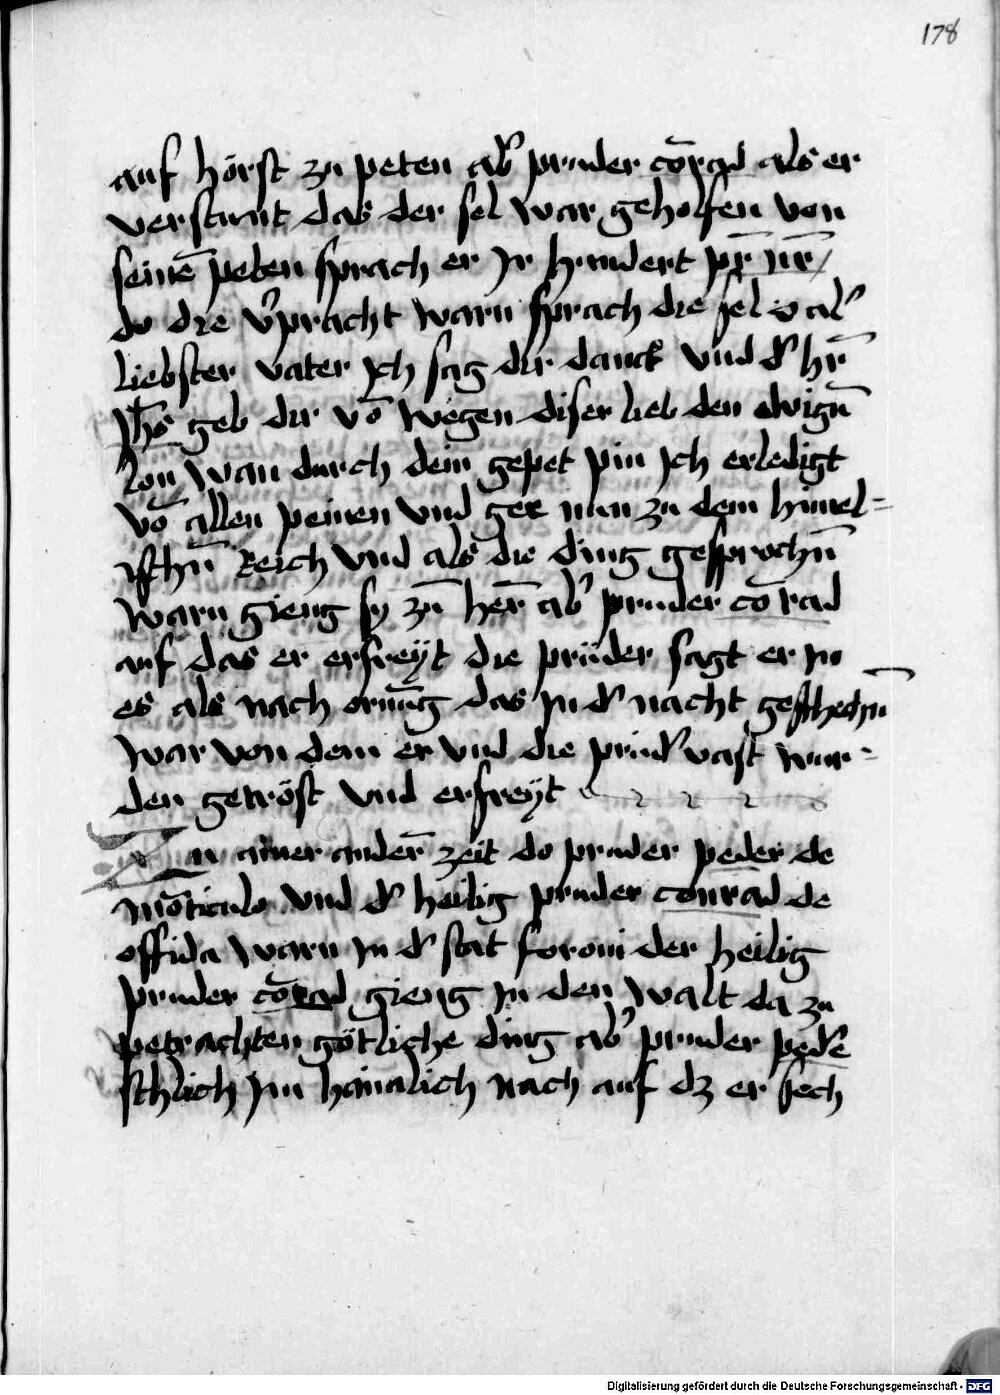 178
auf hörst zu peten ab' pruder cōrad als er
verstunt das der sel war geholfen von
seinē peten sprach er Jr hundert pr̄ nr̄
do die v'pracht warn sprach die sel o al'
liebster vater Jch sag dir danck vnd d' hr̄
Jhs geb dir vō wegen diser lieb den ewign̄
lon wan durch dein gepet pin Jch erledigt
vō allen peinen vnd gee nun zu dem himel=
isthn̄ Reich vnd als die ding gesprochn̄
warn gieng sy zū her̄ ab' pruder cōrad
auf das er erfreyt die prüder sagt er Jn
es als nach ornūg das Jn d' nacht gesthechn̄
war von dem er vnd die prüd' vast wur=
den getröst vnd erfreyt
Zu ainer ander̄ zeit do pruder peder de
mōticulo vnd d' heilig pruder conrad de
offida warn Jn d' stat foroni der heilig
pruder cōrad gieng Jn den walt da zu
petrachten götliche ding ab' pruder ped'e
sthlich Jm haimlich nach auf dz er sech
Digitalisierung gefördert durch die Deutsche Forschungsgemeinschaft - DFG